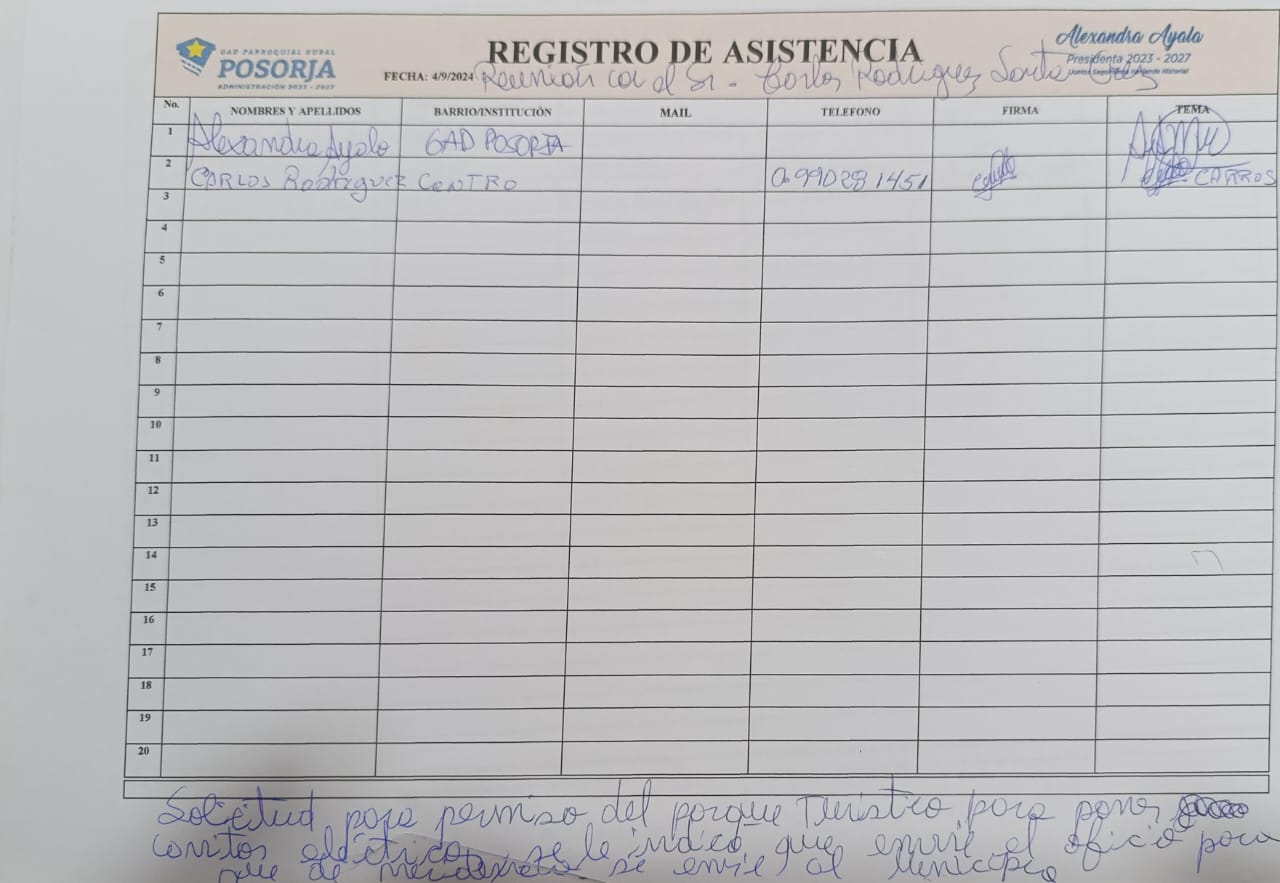 GAD PARROQUIAL RURAL
POSORJA
ADMINISTRACIÓN 2023 - 2027
REGISTRO DE ASISTENCIA
Alexandra Ayala
Presidenta 2023 - 2027
FECHA: 4/9/2024 Reunion con el Sr. Carlos Rodriguez
No. NOMBRES Y APELLIDOS BARRIO/INSTITUCIÓN MAIL TELEFONO FIRMA TEMA
1 Alexandra Ayala GAD POSORJA
2 CARLOS Rodriguez CENTRO 0990281451 CARROS
3
4
5
6
7
8
9
10
11
12
13
14
15
16
17
18
19
20
Solicitud para permiso del parque Turistico, para poner
carritos eléctricos, se le indicó que envie el oficio para
que de se envie al Municipio